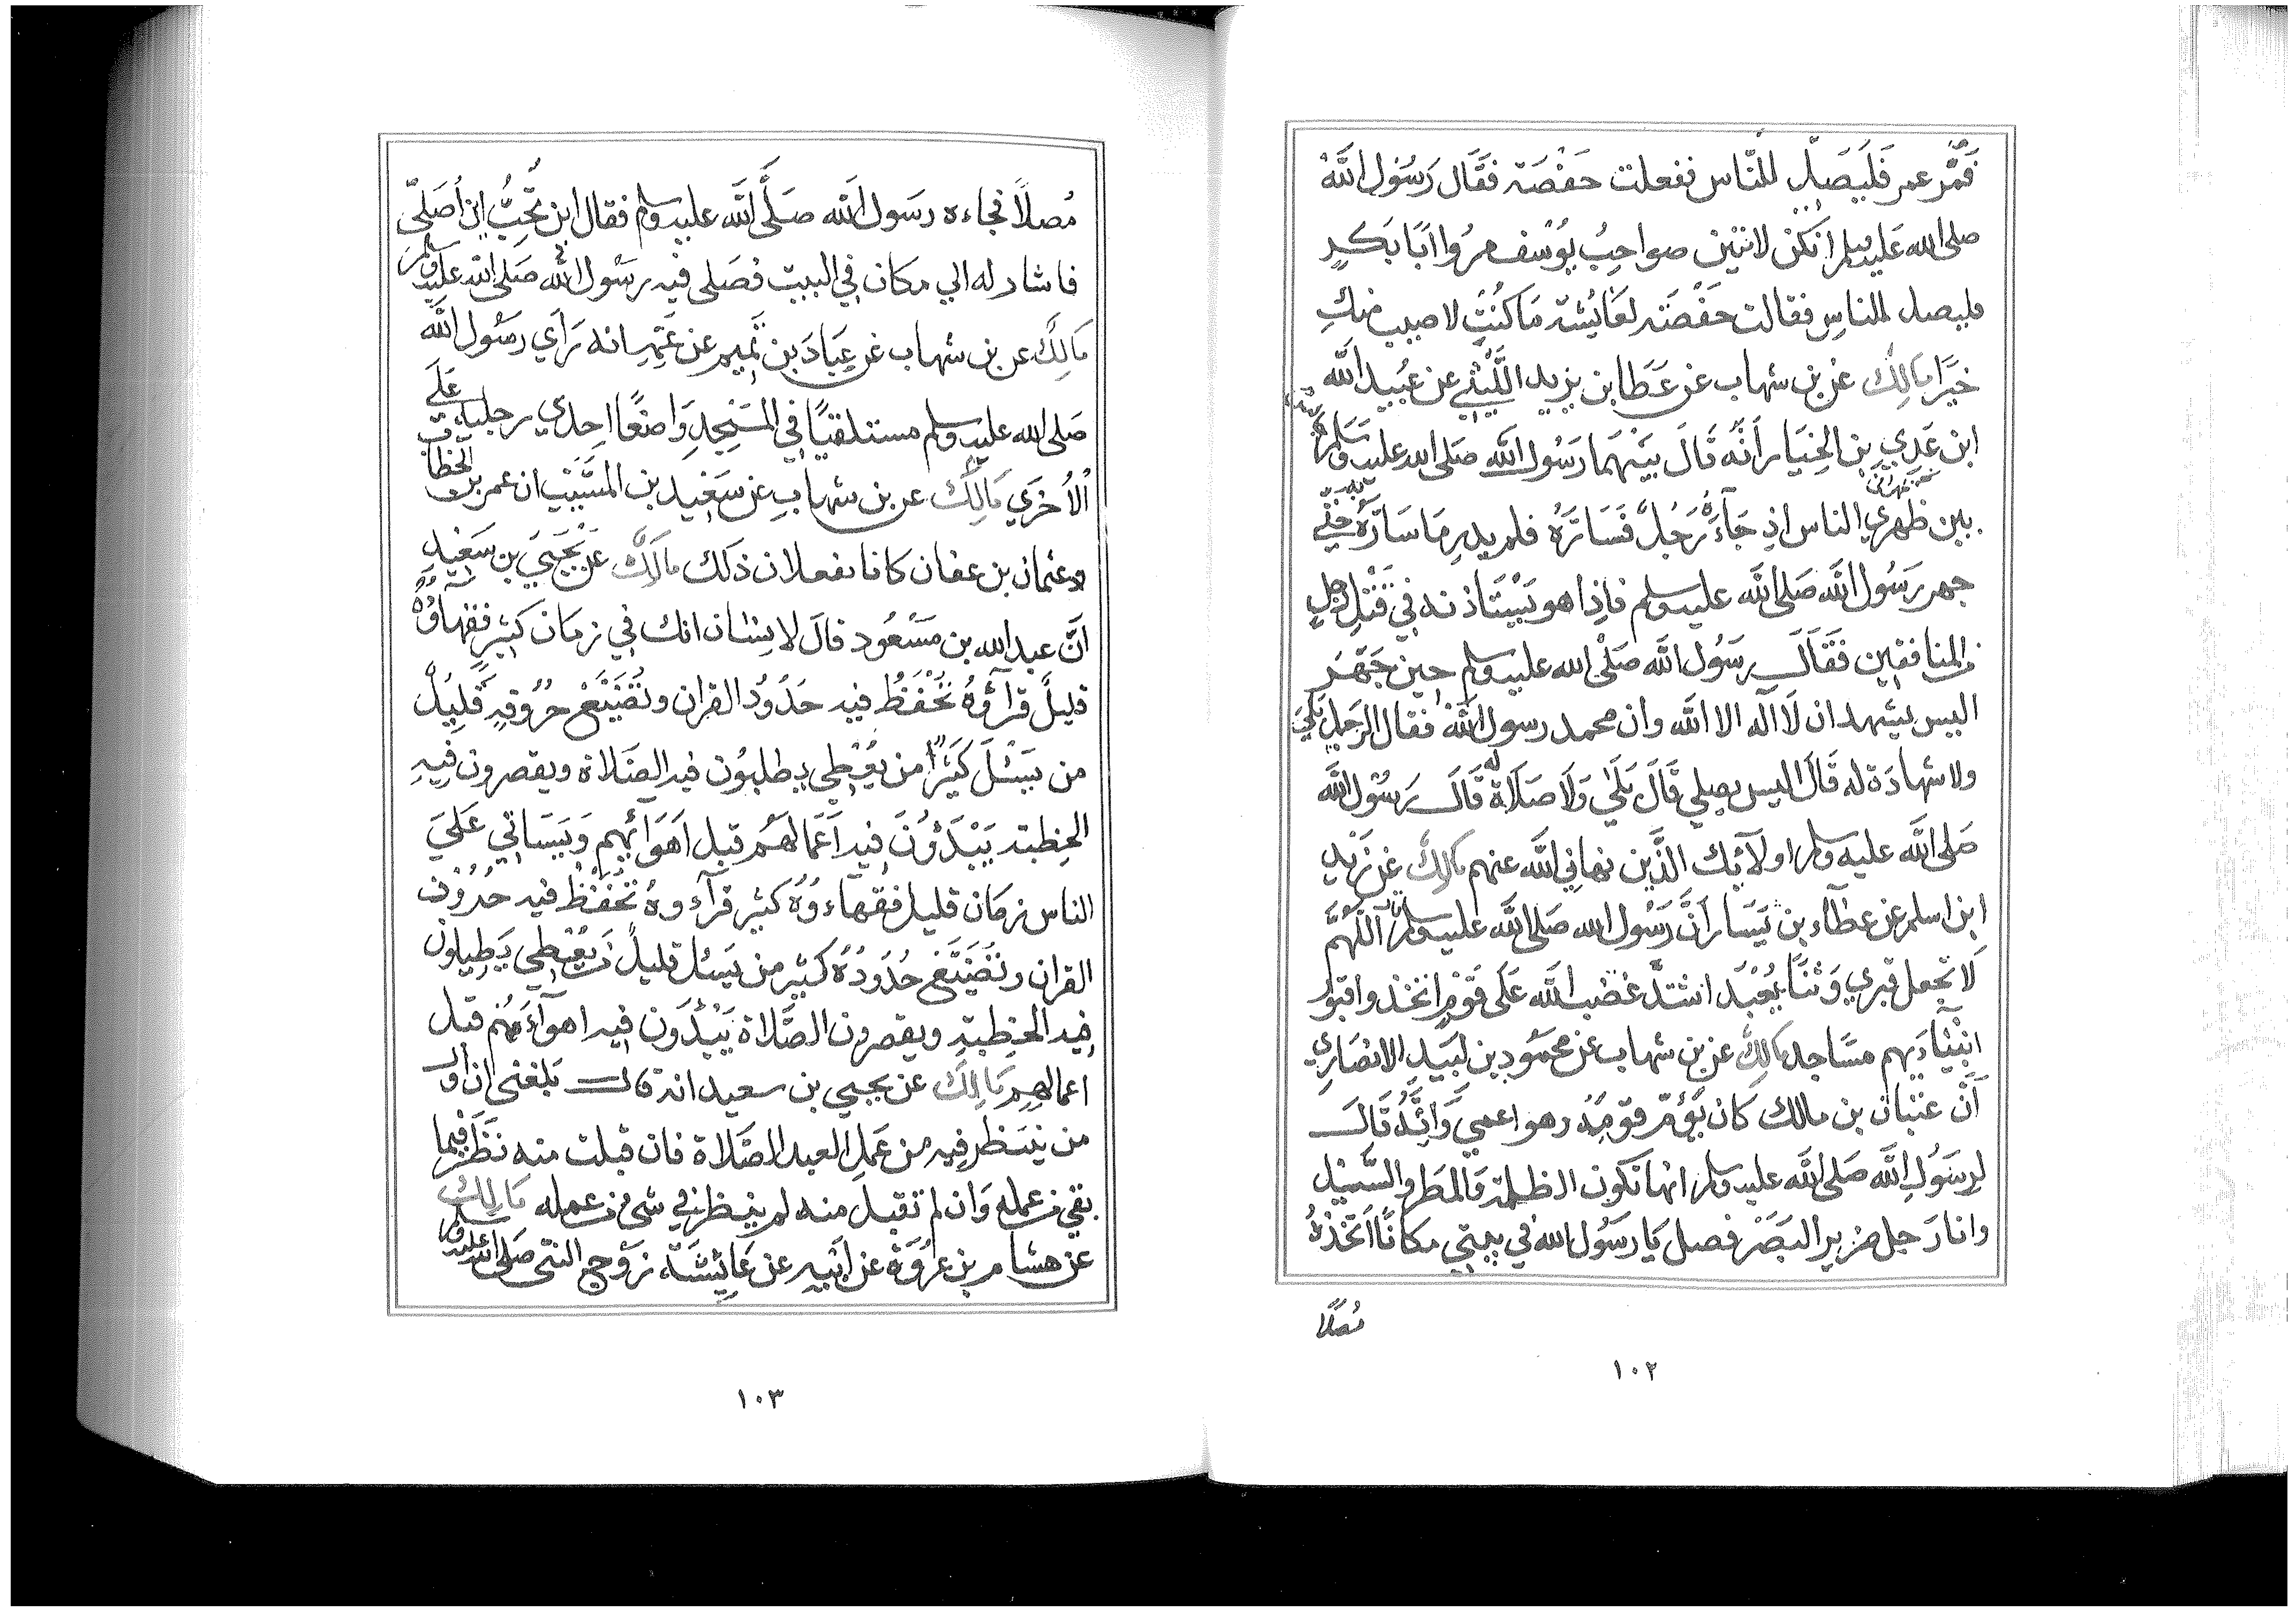 فَمُرْ عمر فَليُصَلِّ للنّاس ففعلت حَفْصَة فقَال رَسُول الله
صلى الله عَليه وسلم إنكن لانتين صواحِبُ يُوسُف مرُوا أبَا بَكرٍ
فليصل للناسِ فقالت حَفْصَة لعَائشة مَا كنتُ لاصيب منكِ
خيرًا مَالِك عن بن شهاب عن عَطا بن يزيد اللَّيْثي عن عُبيد الله
ابن عَدِي بن الخِيَار أنَّه قَالَ بَيْنَهمَا رَسُول الله صَلى الله عليه وسَلم
بين ظَهري الناس اذ جَآءَهُ رَجُلٌ فَسَارَّهُ فلم يدرِ مَا سَارَّهُ حتي
جهر رَسُول الله صَلى الله عليه وسلم فاذِا هو يَسْتَاذنه في قَتْلِ رجلٍ
من المنافقين فَقَالَ رسُول الله صَلى الله عليه وسلم حين جَهَرَ
اليس يشهد ان لَا اله الا الله وان محمد رسول الله فقال الرجل بَلَي
ولا شهادَة له قَالَ اليس يصلي قَالَ بَلَي وَلَا صَلَاة له قَالَ رَسُول الله
صَلى الله عليه وسلم اولائك الذَّين نهاني الله عنهم مَالِك عن زَيد
ابن اسلم عن عطآء بن يَسَار أنَّ رَسُول الله صَلى الله عليه وسلم اللَّهُمَّ
لَا تجعل قبري وَثَنًا يُعْبَد اشتدَّ غضب الله عَلَى قَوْمٍ اتخذوا قبُور
انبيَآئهم مسَاجد مَالِك عن بن شهاب عن محمُود بن لَبيد الانصَاري
أنّ عتبَان بن مالك كان يَؤمّ قومَهُ وهو اعمي وَانَّهُ قَالَ
لِرسُول الله صَلى الله عليه وسلم انها تَكون الظلمة وَالمطر والسَّيْل
وانا رَجل ضرير البَصَر فصل يَا رسُول الله في بيتي مكانًا اتخذهُ
مُصلًا
١٠٢
مُصلاً فجاءه رسَول الله صَلَّى الله عليه وسلم فقال اين تُحِبُّ ان أصَلّي
فاشار له الي مكان في البيت فصَلى فيه رسُول الله صَلى الله عليه وسلم
مَالِك عن بن شهاب عن عبَاد بن تميم عن عَمِّه انه رَاي رسُول الله
صَلى الله عليه وسلم مستلقيًا في المَسْجِدِ وَاضعًا احدي رجليه عَلَى
الأخرَي مَالِك عن بن شهاب عن سَعيد بن المسَيب ان عمر بن الخطاب
وعثمان بن عفان كانا يفعلان ذلك مَالِك عَن يَحْيَي بن سَعيد
انَّ عبد الله بن مَسْعُود قالَ لانسَان انك في زمَان كثير فقهاؤُهُ
قليلٌ قرآؤهُ تُحْفَظُ فيه حَدُودُ القران وتُضَيَّعْ حُرُوفهُ قَلِيلٌ
من يَسْئَل كثيرًا من يُعْطي يطلبُون فيه الصَلاة ويقصرون فِيهِ
الخطبة يَبْدَؤُنَ فيه اعَمَالهُم قبل اهَوَآئهم وَيَسَاتي عَلَيَ
الناس زمَان قليل فقهاءوُهُ كثير قرآءوهُ تُحْفَظُ فيه حُرُوف
القران وتُضَيَّع حُدُودُهُ كثير من يَسئل قليلٌ مَن يُعْطي يُطِيلون
فيه الخطبة ويقصرون الصَّلاة يَبْدُؤن فيه اهوآءَهُم قبل
اعمالهِم مَالِك عن يحيي بن سعيد انه قال بَلغني ان اول
من ينظر فِيهِ من عَمَلِ العبد الصَّلاة فان قبلت منه نَظَر فيما
بقي من عمله وَان لم تقبل منه لم ينظر في شئ من عمله مَالِك
عن هشام بن عُرْوَةَ عن ابَيه عن عَائشَة زَوْج النبي صَلى الله عليه وسلم
١٠٣